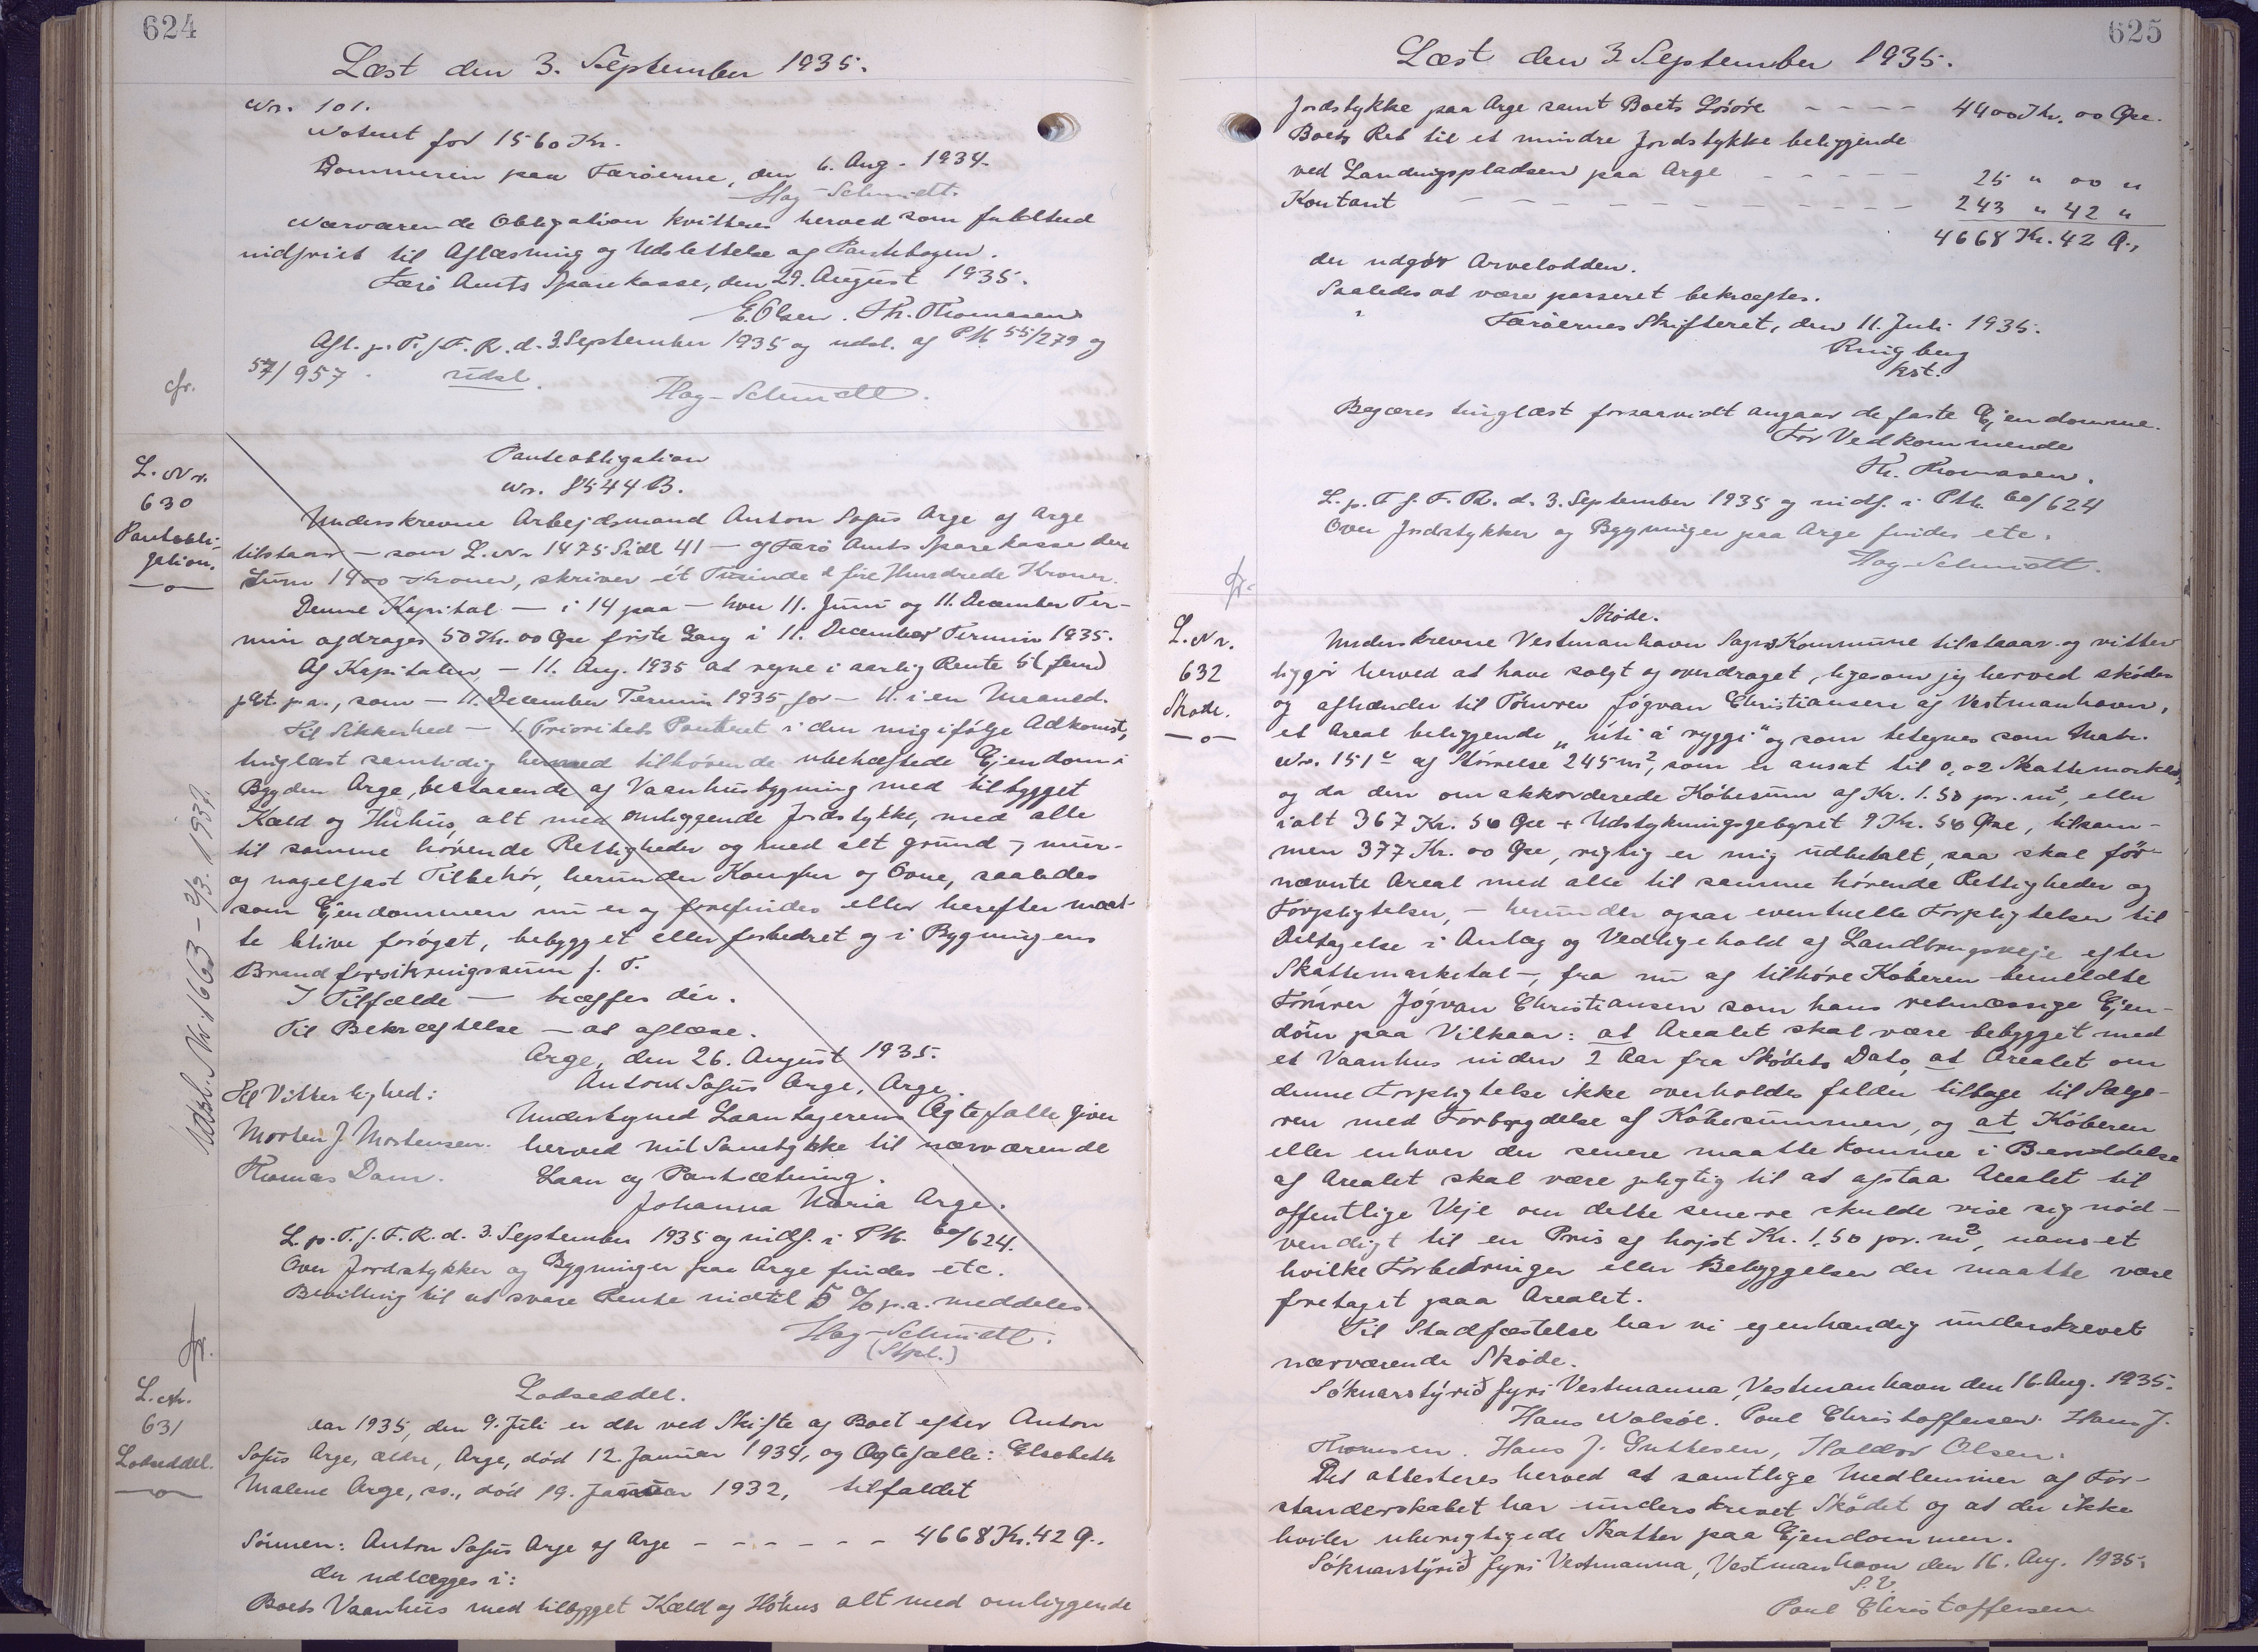 624
Læst den 3. September 1935.
Nr. 101.
Noteret for 1560 Kr.
Dommeren paa Færøerne, den 6. Aug. 1934.
Hag-Schmidt.
Nærværende Obligation kvitteres herved som fuldtud
indfriet til Aflæsning og Udslettelse af Pantebogen.
Færø Amts Sparekasse, den 29. August 1935.
E. Olsen. Th. Thomasen
Afl. p. T. f. F. R. d. 3 September 1935 og udsl. af PM 55/279 og
57/957. udsl.
Hag-Schmidt.
cfr.
L. Nr.
630
Panteobli-
gation.
Panteobligation
Nr. 8544 B.
Underskrevne Arbejdsmand Anton Sofus Arge af Arge
tilstaar — som L. Nr 1475 Sidl 41 — af Færø Amts Sparekasse den
Sum 1400 Kroner, skriver ét Tusinde & fire Hundrede Kroner.
Denne Kapital — i 14 paa — hver 11. Juni og 11. December Ter-
min afdrages 50 Kr. 00 Øre første Gang i 11. December Termin 1935.
Af Kapitalen, — 11. Aug. 1935 at regne i aarlig Rente 5 (fem)
pCt. p.a., som — 11. December Termin 1935 for — 11. i en Maaned.
Til Sikkerhed — 1 Prioritets Panteret i den mig ifølge Adkomst,
tinglæst samtidig hermed tilhørende ubehæftede Ejendom i
Bygden Arge, bestaaende af Vaanhusbygning med tilbygget
Kæld og Høhus, alt med omliggende Jordstykke, med alle
til samme hørende Rettigheder og med alt grund, mur-
og nagelfast Tilbehør, herunder Komfur og Ovne, saaledes
som Ejendommen nu er og forefindes eller herefter maat-
te blive forøget, bebygget eller forbedret og i Bygningens
Brandforsikringssum f. T.
I Tilfælde — træffes dér.
Til Bekræftelse — at aflæse.
Arge, den 26. August 1935.
Anton Sofus Arge, Arge.
Til Vitterlighed:
Morten J Mortensen.
Thomas Dam.
Undertegned Laantagerens Ægtefælle giver
herved mit Samtykke til nærværende
Laan og Pantsætning.
Johanna Maria Arge.
L. p. T. f. F. R. d. 3. September 1935 og indf. i PM. 60/624.
Over Jordstykker og Bygninger paa Arge findes etc.
Bevilling til at svare Rente indtil 5 % p.a. meddeles.
Hag-Schmidt.
(Stpl.)
Udsl. Nr. 1663 - 2/3. 193
cfr.
L. Nr.
631
Lodseddel.
Lodseddel.
Aar 1935, den 9. Juli er der ved Skifte af Boet efter Anton
Sofus Arge, ældre, Arge, død 12. Januar 1934, og Ægtefælle: Elsebeth
Malene Arge, ss., død 19. Januar 1932, tilfaldet
Sønnen: Anton Sofus Arge af Arge - - - - - - 4668 Kr. 42 Ø.
der udlægges i:
Boets Vaanhus med tilbygget Kæld og Høhus alt med omliggende
625
Læst den 3 September 1935.
Jordstykke paa Arge samt Boets Løsøre - - - - 4400 Kr. 00 Øre.
Boets Ret til et mindre Jordstykke beliggende
ved Landingspladsen paa Arge - - - - - 25 " 00 "
Kontant - - - - - - - - - - - - 243 " 42 "
4668 Kr. 42 Ø.,
der udgør Arvelodden.
Saaledes at være passeret bekræftes.
Færøernes Skifteret, den 11. Juli 1935.
Ringberg
kst.
Begæres tinglæst forsaavidt angaar de faste Ejendomme.
For Vedkommende
Th. Thomasen.
L. p. T f. F. R. d. 3. September 1935 og indf. i PM. 60/624
Over Jordstykker og Bygninger paa Arge findes etc.
Hag-Schmidt.
cfr.
L. Nr.
632
Skøde.
Skøde.
Underskrevne Vestmanhavn Sogns Kommune tilstaar og vitter
liggør herved at have solgt og overdraget, ligesom jeg herved skøder
og afhænder til Tømrer Jógvan Christiansen af Vestmanhavn,
et Areal beliggende „úti á ryggi" og som betegnes som Matr.
Nr. 151 af Størrelse 245 m², som er ansat til 0,02 Skattemarker,
og da den omakkorderede Købesum af Kr. 1.50 pr. m², eller
ialt 367 Kr. 50 Øre + Udstykningsgebyret 9 Kr. 50 Øre, tilsam-
men 377 Kr. 00 Øre, rigtig er mig udbetalt, saa skal før-
nævnte Areal med alle til samme hørende Rettigheder og
Forpligtelser, — herunder ogsaa eventuelle Forpligtelser til
Deltagelse i Anlæg og Vedligehold af Landbrugsveje efter
Skattemarketal —, fra nu af tilhøre Køberen bemeldte
Tømrer Jógvan Christiansen som hans retmæssige Ejen-
dom paa Vilkaar: at Arealet skal være bebygget med
et Vaanhus inden 2 Aar fra Skødets Dato, at Arealet om
denne Forpligtelse ikke overholdes falder tilbage til Sælge-
ren med Forbrydelse af Købesummen, og at Køberen
eller enhver der senere maatte komme i Besiddelse
af Arealet skal være pligtig til at afstaa Arealet til
offentlige Veje om dette senere skulde vise sig nød-
vendigt til en Pris af højst Kr. 1.50 pr. m², uanset
hvilke Forbedringer eller Bebyggelser der maatte være
foretaget paa Arealet.
Til Stadfæstelse har vi egenhændig underskrevet
nærværende Skøde.
Sóknarstýrið fyri Vestmanna, Vestmanhavn den 16. Aug. 1935.
Hans Nolsøe. Poul Christoffersen. Hans J.
Thomsen. Hans J. Guttesen, Haldor Olsen.
Det attesteres herved at samtlige Medlemmer af For-
standerskabet har underskrevet Skødet og at der ikke
hviler uberigtigede Skatter paa Ejendommen.
Sóknarstýrið fyri Vestmanna, Vestmanhavn den 16. Aug. 1935.
S. V.
Poul Christoffersen